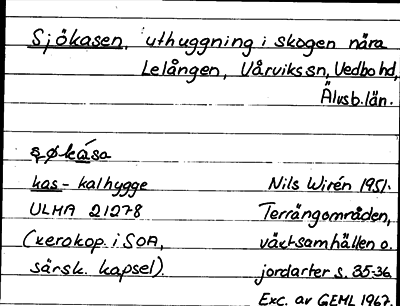 Sjökasen, uthuggning i skogen nära
Lelången, Vårvikssn, Vedbo hd,
Älvsb. län.
sø̀kása
kas - kalhygge Nils Wirén 1951.
ULMA 21278 Terrängområden,
(xerokop. i SOA, växtsamhällen o.
särsk. kapsel) jordarter s. 35-36
Exc. av GEHL 1967.